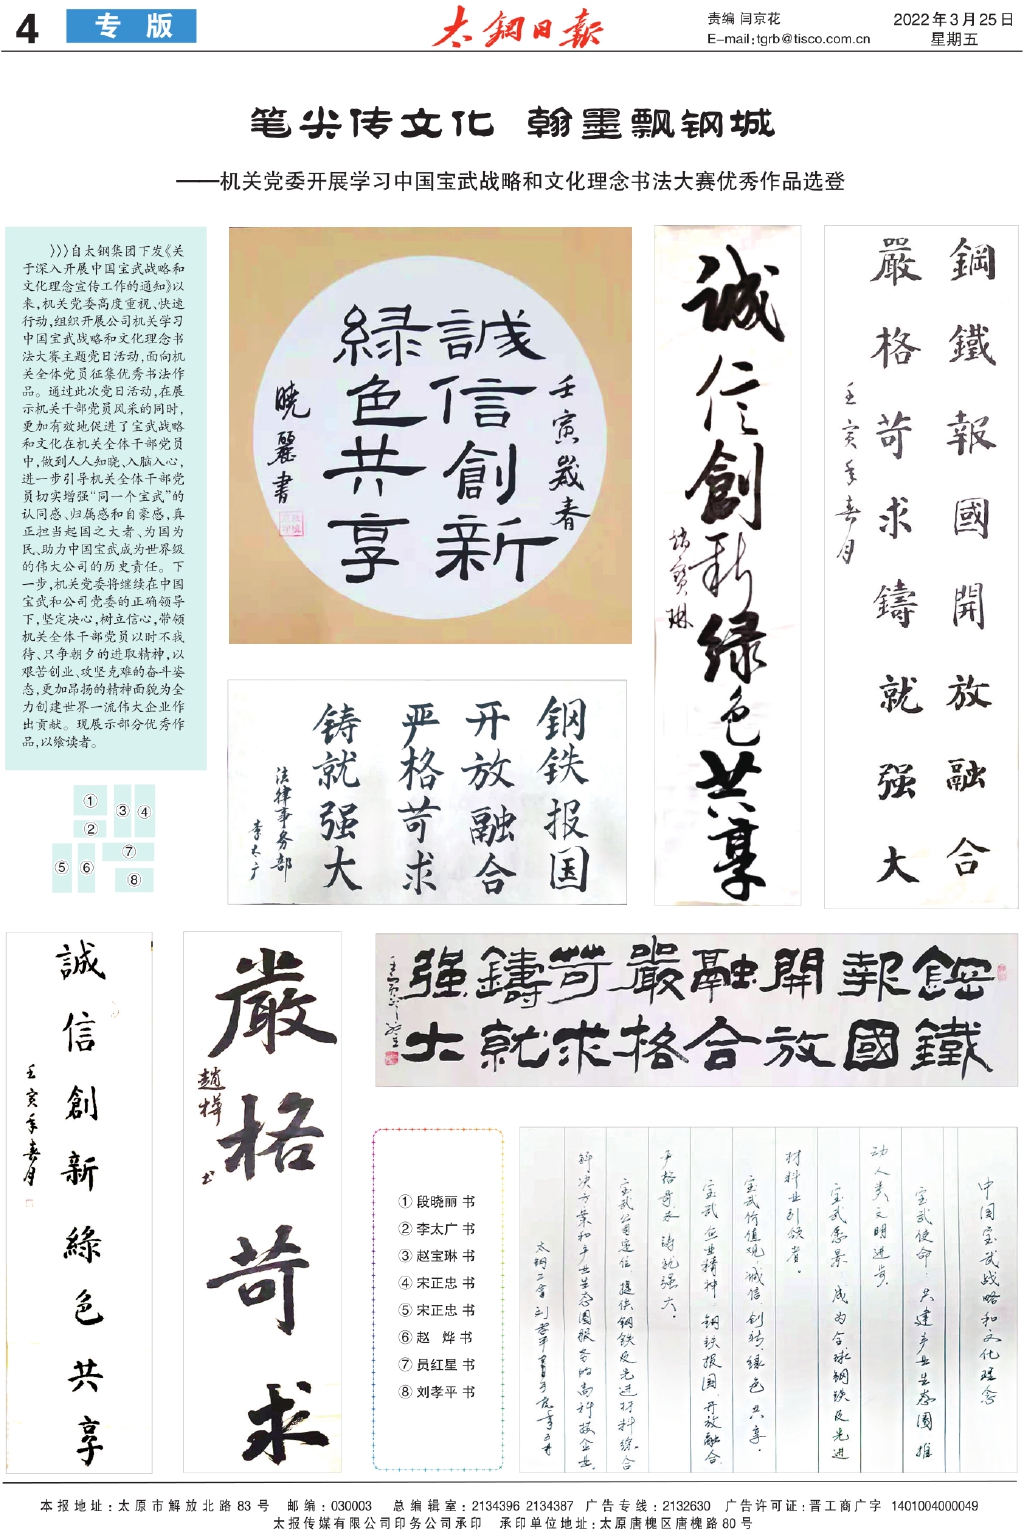 4
专 版
太钢日报
责编 闫京花
E-mail:tgrb@tisco.com.cn
2022年3月25日
星期五
笔尖传文化 翰墨飘钢城
——机关党委开展学习中国宝武战略和文化理念书法大赛优秀作品选登
》》》自太钢集团下发《关
于深入开展中国宝武战略和
文化理念宣传工作的通知》以
来,机关党委高度重视、快速
行动,组织开展公司机关学习
中国宝武战略和文化理念书
法大赛主题党日活动,面向机
关全体党员征集优秀书法作
品。通过此次党日活动,在展
示机关干部党员风采的同时,
更加有效地促进了宝武战略
和文化在机关全体干部党员
中,做到人人知晓、入脑入心,
进一步引导机关全体干部党
员切实增强“同一个宝武”的
认同感、归属感和自豪感,真
正担当起国之大者、为国为
民、助力中国宝武成为世界级
的伟大公司的历史责任。下
一步,机关党委将继续在中国
宝武和公司党委的正确领导
下,坚定决心,树立信心,带领
机关全体干部党员以时不我
待、只争朝夕的进取精神,以
艰苦创业、攻坚克难的奋斗姿
态,更加昂扬的精神面貌为全
力创建世界一流伟大企业作
出贡献。现展示部分优秀作
品,以飨读者。
①
②
③
④
⑤
⑥
⑦
⑧
壬寅岁春
誠信創新
緑色共享
曉麗書
钢铁报国
开放融合
严格苛求
铸就强大
法律事务部
李太广
诚信創新绿色共享
赵寳琳
鋼鐵報國開放融合
嚴格苛求鑄就强大
壬寅年春月
誠信創新綠色共享
壬寅年春月
嚴格苛求
趙燁书
鋼鐵
報國
開放
融合
嚴格
苛求
鑄就
强大
① 段晓丽 书
② 李太广 书
③ 赵宝琳 书
④ 宋正忠 书
⑤ 宋正忠 书
⑥ 赵 烨 书
⑦ 员红星 书
⑧ 刘孝平 书
中国宝武战略和文化理念
宝武使命：共建产业生态圈 推
动人类文明进步
宝武愿景 成为全球钢铁及先进
材料业引领者。
宝武价值观：诚信、创新、绿色、共享。
宝武企业精神 钢铁报国、开放融合、
严格苛求、铸就强大。
宝武公司定位 提供钢铁及先进材料综合
解决方案和产业生态圈服务的高科技企业。
本报地址:太原市解放北路83号 邮编:030003 总编辑室:2134396 2134387 广告专线:2132630 广告许可证:晋工商广字 1401004000049
太报传媒有限公司印务公司承印 承印单位地址:太原唐槐区唐槐路80号